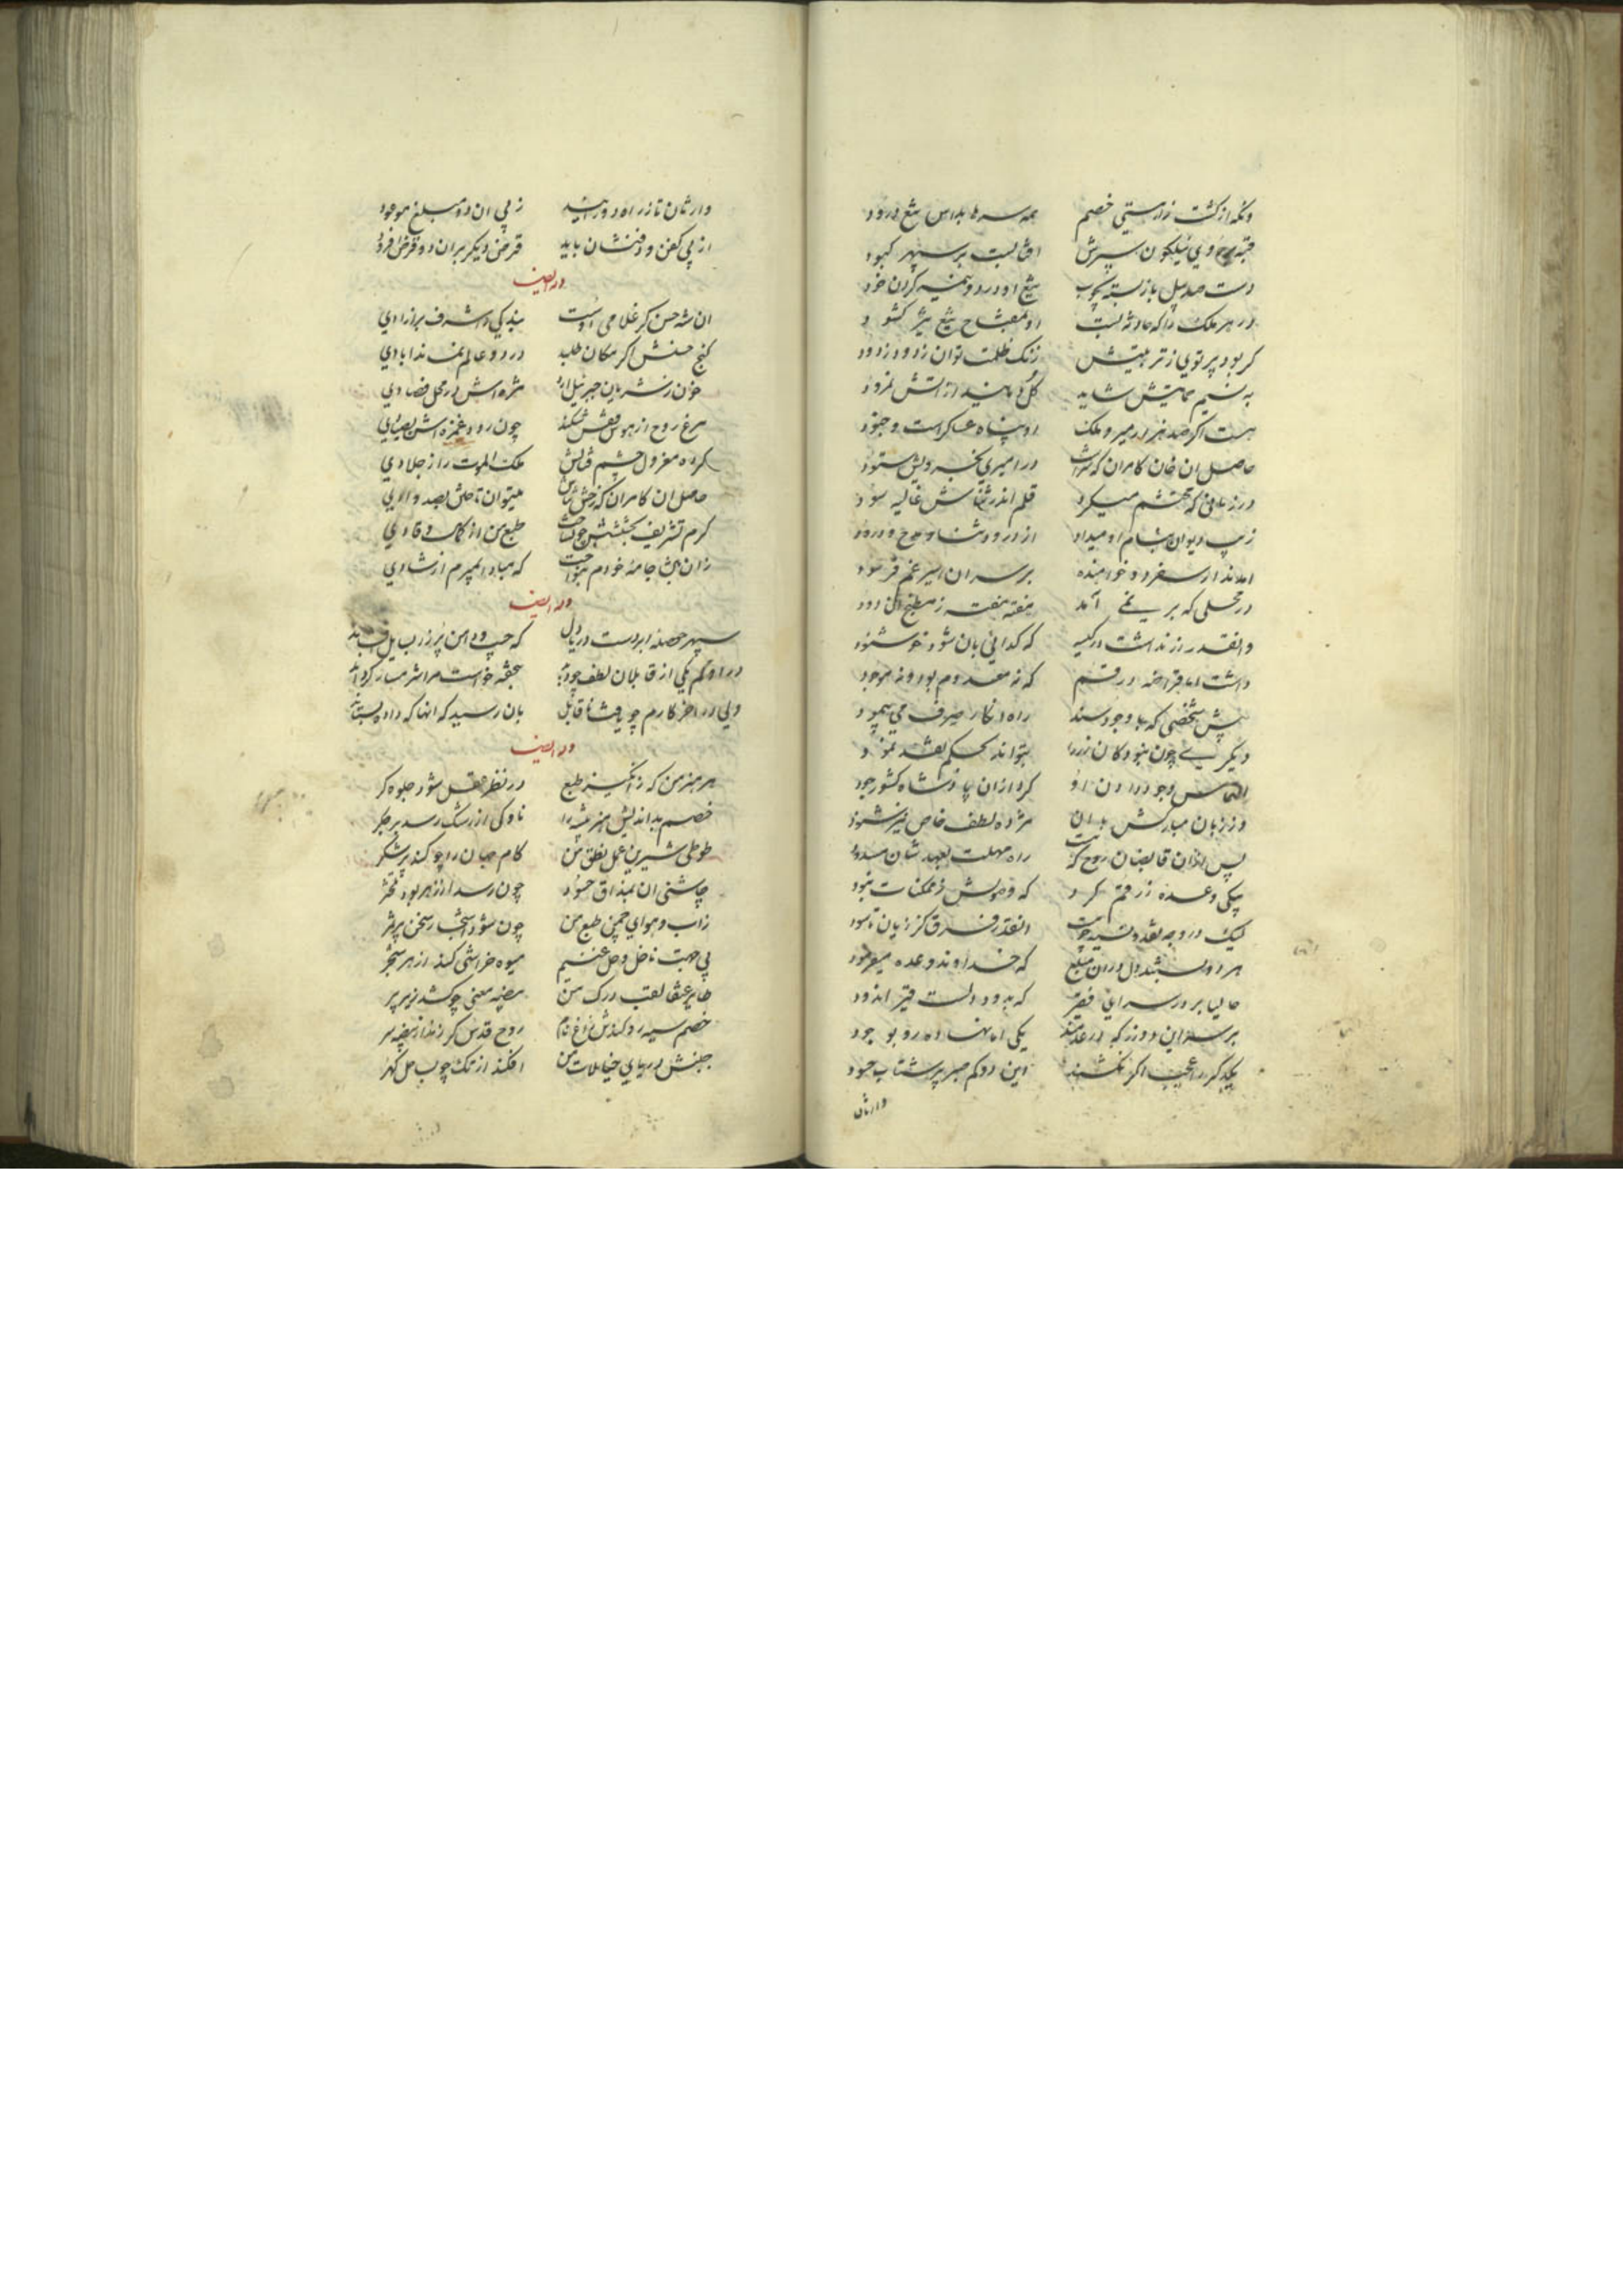 وانکه از کشت زار هستی خصم همه سرها بداس تیغ درود
قبه نیلکون سپرش بر سپهر کبود
دست صد پیل باز بسته بچوب تیغ او در دو نیمه کردن خود
در هر ملک را که حادثه بست او بمفتاح تیغ تیز کشود
کر بود پرتوی ز تربیتش زنک ظلمت توان ز دود زدود
به نسیم حمایتش شاید کل دمانید از آتش نمرود
هست اکر صد هزار میر و ملک او پناه عساکر است و جنود
حاصل ان خان کامران که در امیری بخسرویش ستود
در زمانی که محتشم میکرد قلم اندر ثناش غالیه سود
زیب دیوان بنام او میداد از درود و ثنا و مدح و درود
امدند از سفر دو خواهنده بر سر ان اسیر غم فرسود
در محلی که بر نمی آمد هفته هفته ز مطبخ ان دود
وانقدر زر نداشت در کیسه که کدائی بان شود خوشنود
داشت اما قراضه در قسم که نه معدوم بود و نه موجود
پیش شخصی که با وجود سند راه انکار صرف می پیمود
دیکری چون نبود کان زر را بتواند بحکم نقد نمود
التماس وجوه دادن او کرد ازان پادشاه کشور جود
وز زبان مبارکش بدان مژده لطف خاص نیز شنود
پس ازان قابضان روح که راه مهلت بعهد شان مسدود
یکی وعده زر رقم کرد که وصولش ز ممکنات نبود
لیک در وجه نقد و نسیه انقدر فرق کز زیان تا سود
هر دو بستند دل دران مبلغ که خداوند وعده میفرمود
حالیا بر در سرای فقیر که بدود دلست قیر اندود
بر سر این دو زر که در عدمند یکی اما نهاده رو بوجود
یکدکر را عجب اکر نکشند این دو کم صبر پر شتاب حسود
وارثان
وارثان تا ز راه دور آیند ز پی ان دو مبلغ موعود
از پی کفن و دفنشان باید قرض دیکر بران دو قرض فزود
وله ایضا
ان شه حسن کز غلامی اوست بندکی را شرف بر ازادی
کنج حسنش اکر مکان طلبد در دو عالم نماند ابادی
خون ز شریان جبرئیل ارد مژه اش در محل فصادی
مرغ روح از هوس قفس شکند چون رود غمزه اش بصیادی
کرده معزول چشم قتالش ملک الموت را ز جلادی
حاصل ان کامران که میتوان تاختن بصد وادی
کرم تشریف بخششش طبع من از کمال وقادی
زان بمن جامهٔ خودم ننواخت که مبادا بمیرم از شادی
وله ایضا
سپهر حوصله ابردست دریا دل که جیب و دامن پر زر بسایل افشاند
در اولم یکی از قابلان لطف بتحفه خواست مرا شرمسار کرداند
ولی در اخر کارم چو یافت ناقابل بان رسید که انها که داده بستاند
وله ایضا
هر هنر من که ز انکیز طبع در نظر عقل شود جلوه کر
خصم بداندیش هنر پیشه را ناوکی از رشک رسد بر جکر
طوطی شیرین عمل نطق من کام جهان را چو کند پر شکر
چاشنی ان بمذاق حسود چون رسد از زهر بود تلختر
زاب و هوای چمن طبع من چون شود اشجار سخن پر ثمر
بی جهت ناخل و خل غنیم میوه خراشی کند از هر شجر
طایر عنقا لقب درک من بیضه معنی چو کشد زیر پر
خصم سیه رو کندش زاغ نام روح قدس کر زند از بیضه سر
جنبش دریای خیالات من افکند از تک چو بساحل کهر